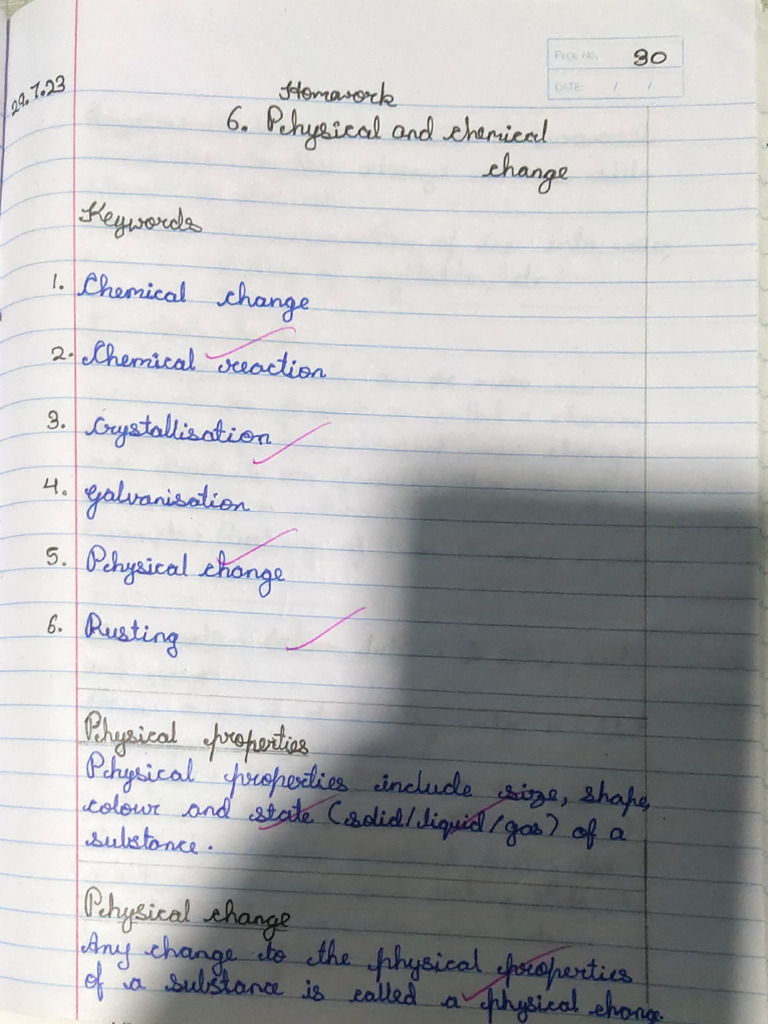 PAGE NO. 30
DATE: / /
29.7.23
Homework
6. Physical and chemical
change
Keywords
1. Chemical change
2. Chemical reaction
3. Crystallisation
4. Galvanisation
5. Physical change
6. Rusting
Physical properties
Physical properties include size, shape,
colour and state (solid/liquid/gas) of a
substance.
Physical change
Any change to the physical properties
of a substance is called a physical change.